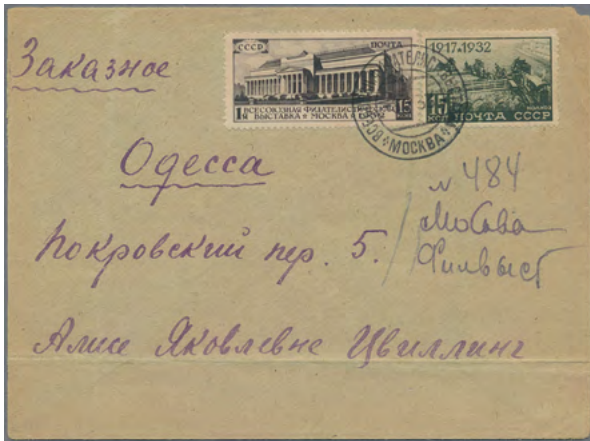 Заказное
СССР ПОЧТА
1я ВСЕСОЮЗНАЯ ФИЛАТЕЛИСТИЧЕСКАЯ 15
ВЫСТАВКА МОСКВА
1917-1932
15 КОП ПОЧТА СССР
МОСКВА
Одесса
N 484
Москва
Филвыст
Покровский пер. 5.
Алисе Яковлевне Цвиллинг